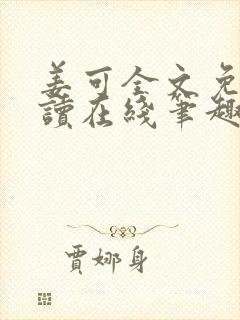 姜可全文免
讀在綫筆趣
賈娜身